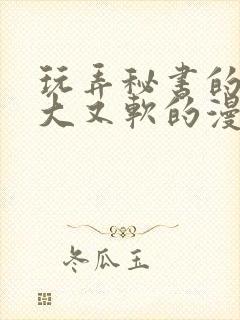 玩弄秘书的
大又软的漫
冬瓜玉